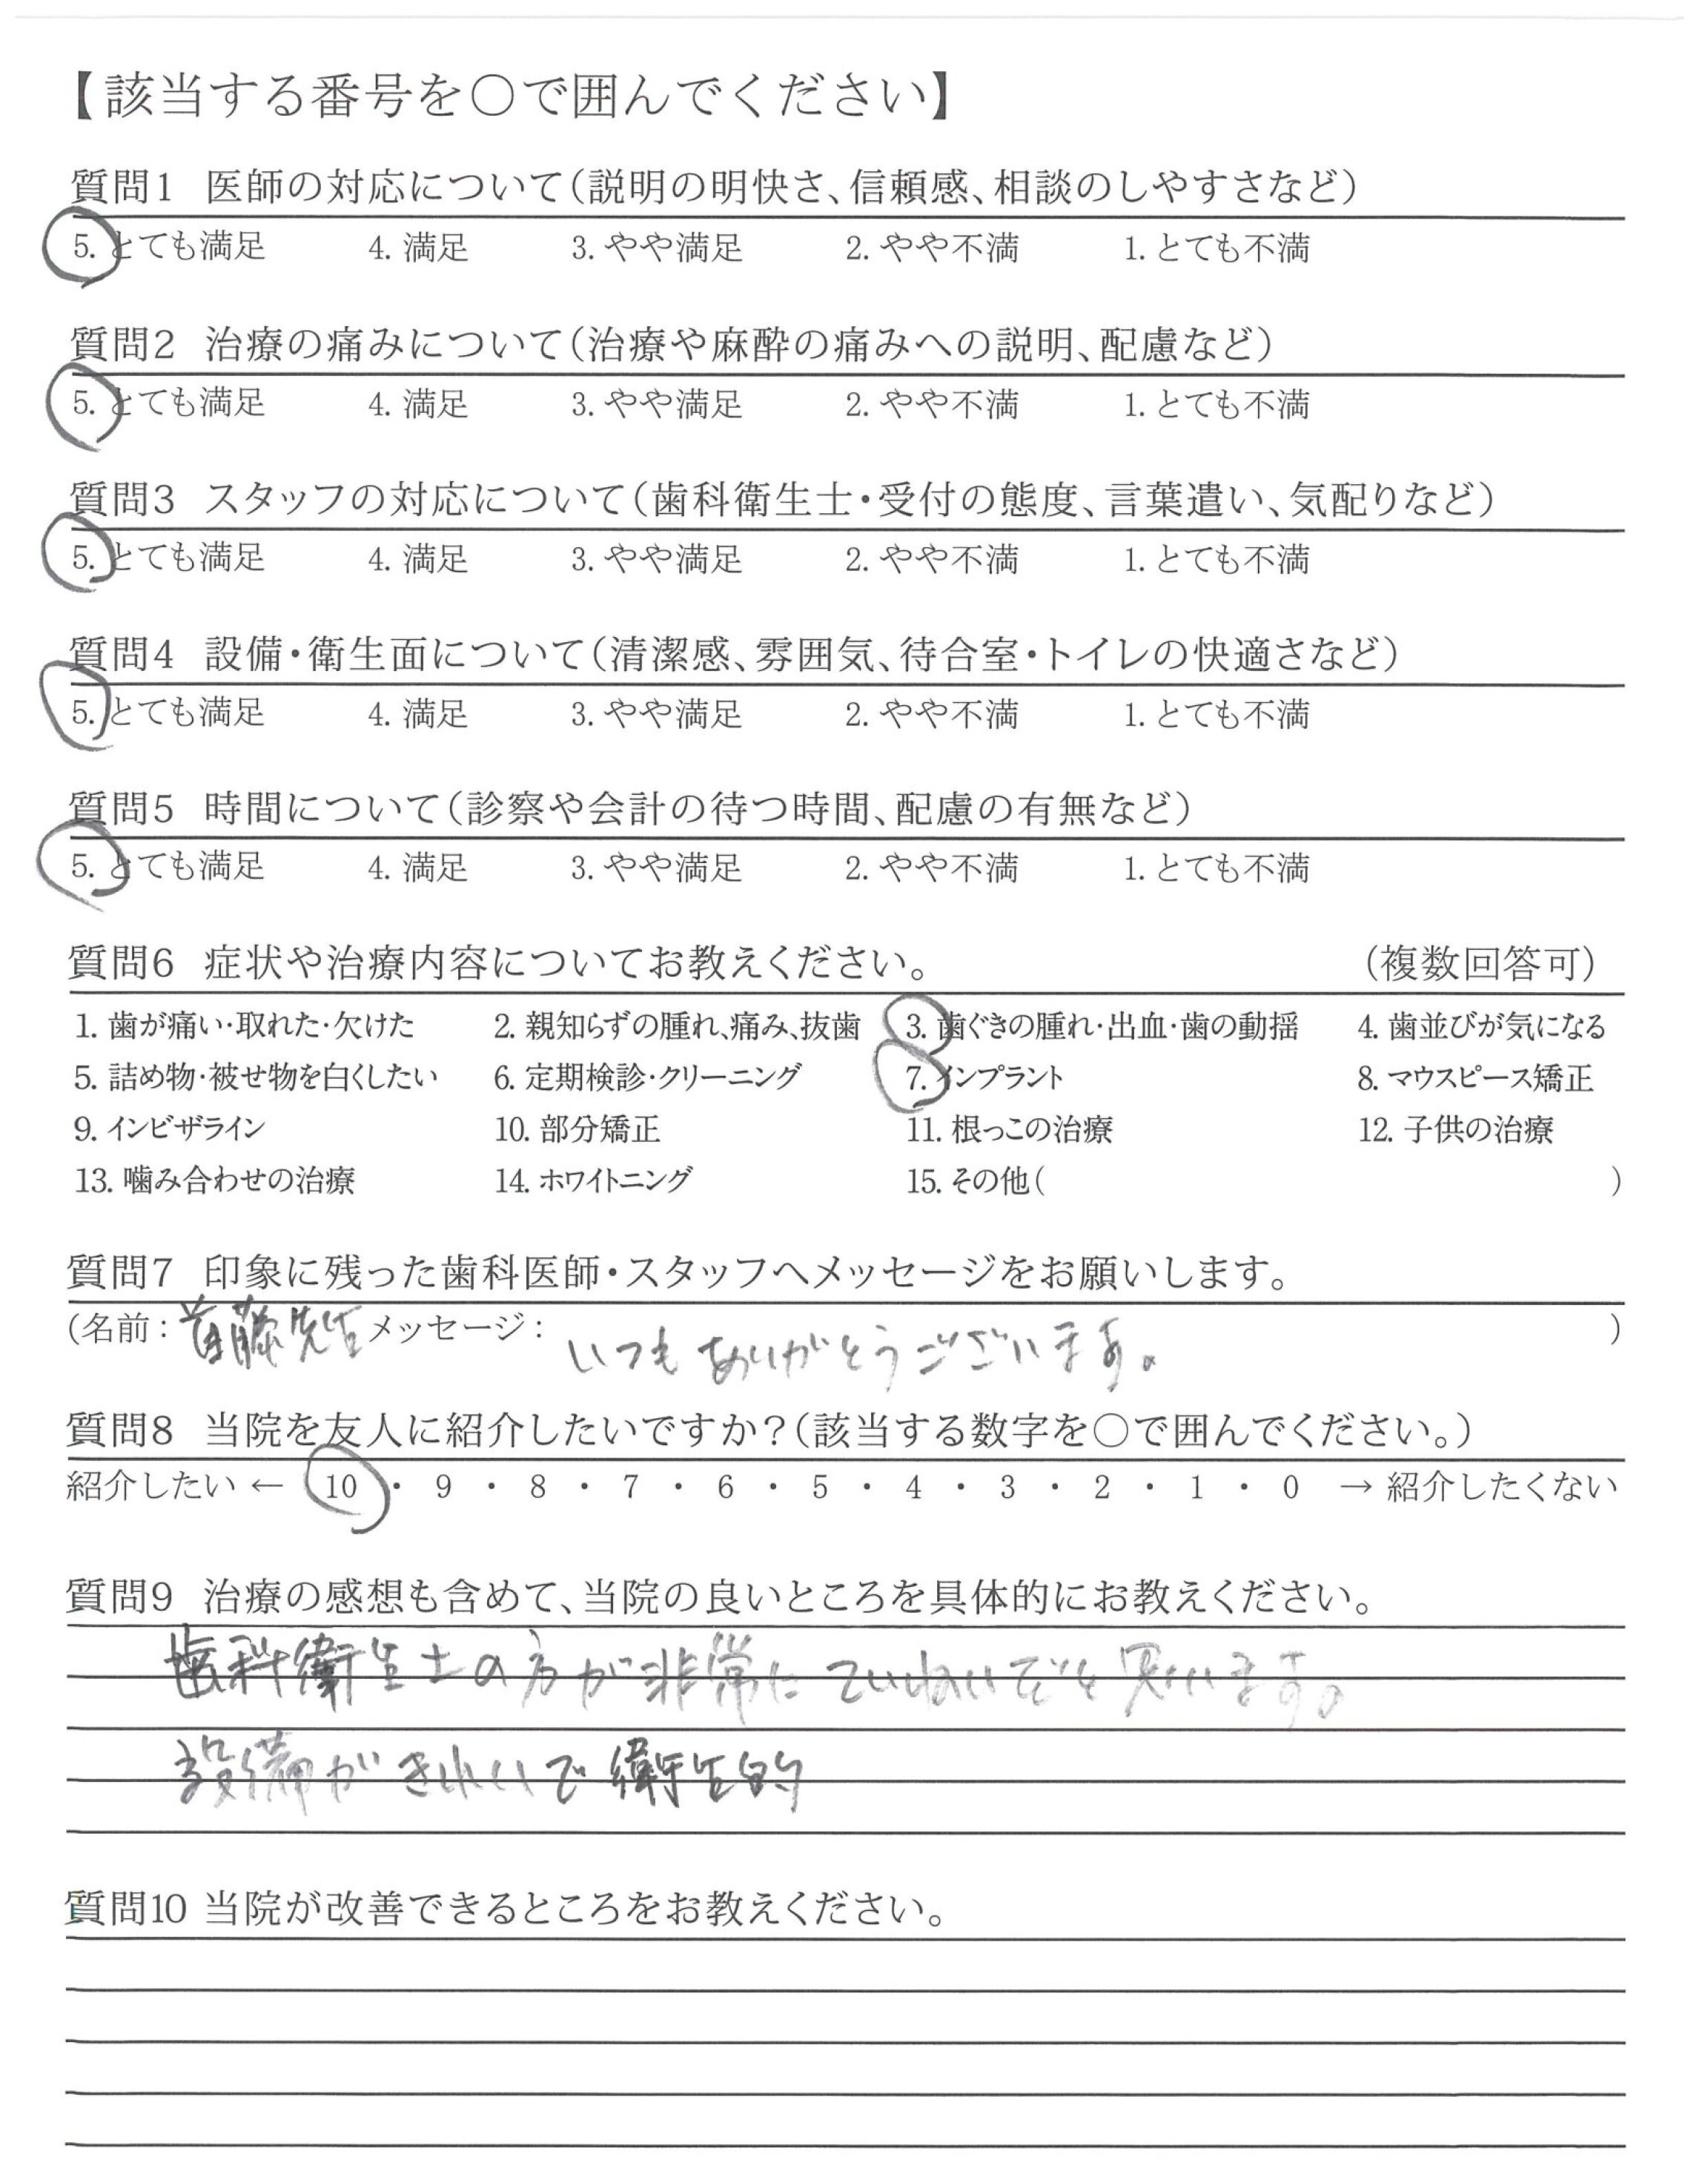 【該当する番号を○で囲んでください】
質問1 医師の対応について（説明の明快さ、信頼感、相談のしやすさなど）
5. とても満足 4. 満足 3. やや満足 2. やや不満 1. とても不満
質問2 治療の痛みについて（治療や麻酔の痛みへの説明、配慮など）
5. とても満足 4. 満足 3. やや満足 2. やや不満 1. とても不満
質問3 スタッフの対応について（歯科衛生士・受付の態度、言葉遣い、気配りなど）
5. とても満足 4. 満足 3. やや満足 2. やや不満 1. とても不満
質問4 設備・衛生面について（清潔感、雰囲気、待合室・トイレの快適さなど）
5. とても満足 4. 満足 3. やや満足 2. やや不満 1. とても不満
質問5 時間について（診察や会計の待つ時間、配慮の有無など）
5. とても満足 4. 満足 3. やや満足 2. やや不満 1. とても不満
質問6 症状や治療内容についてお教えください。 （複数回答可）
1. 歯が痛い・取れた・欠けた 2. 親知らずの腫れ、痛み、抜歯 3. 歯ぐきの腫れ・出血・歯の動揺 4. 歯並びが気になる
5. 詰め物・被せ物を白くしたい 6. 定期検診・クリーニング 7. インプラント 8. マウスピース矯正
9. インビザライン 10. 部分矯正 11. 根っこの治療 12. 子供の治療
13. 噛み合わせの治療 14. ホワイトニング 15. その他（ ）
質問7 印象に残った歯科医師・スタッフへメッセージをお願いします。
（名前：首藤先生 メッセージ： いつもありがとうございます。 ）
質問8 当院を友人に紹介したいですか？（該当する数字を○で囲んでください。）
紹介したい ← 10 ・ 9 ・ 8 ・ 7 ・ 6 ・ 5 ・ 4 ・ 3 ・ 2 ・ 1 ・ 0 → 紹介したくない
質問9 治療の感想も含めて、当院の良いところを具体的にお教えください。
歯科衛生士の方が非常にていねいだと思います。
設備がきれいで衛生的
質問10 当院が改善できるところをお教えください。